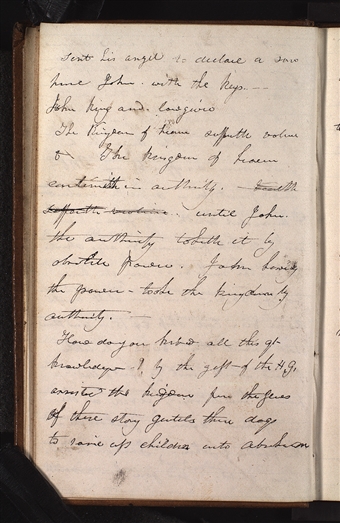 sent his angel to declare a son
John. with the keys. —
John King and lawgiver
The Kingdom of heaven suffereth violence
& The kingdom of heaven
continueth in authority.
until John.
the authority taketh it by
absolute power. John having
the power - took the kingdom by
authority. —
How do you know all this gt
knowledge? by the gift of the H.G.
the kingdom from the Jews
Of these stony Gentiles these dogs
to raise up children unto Abraham